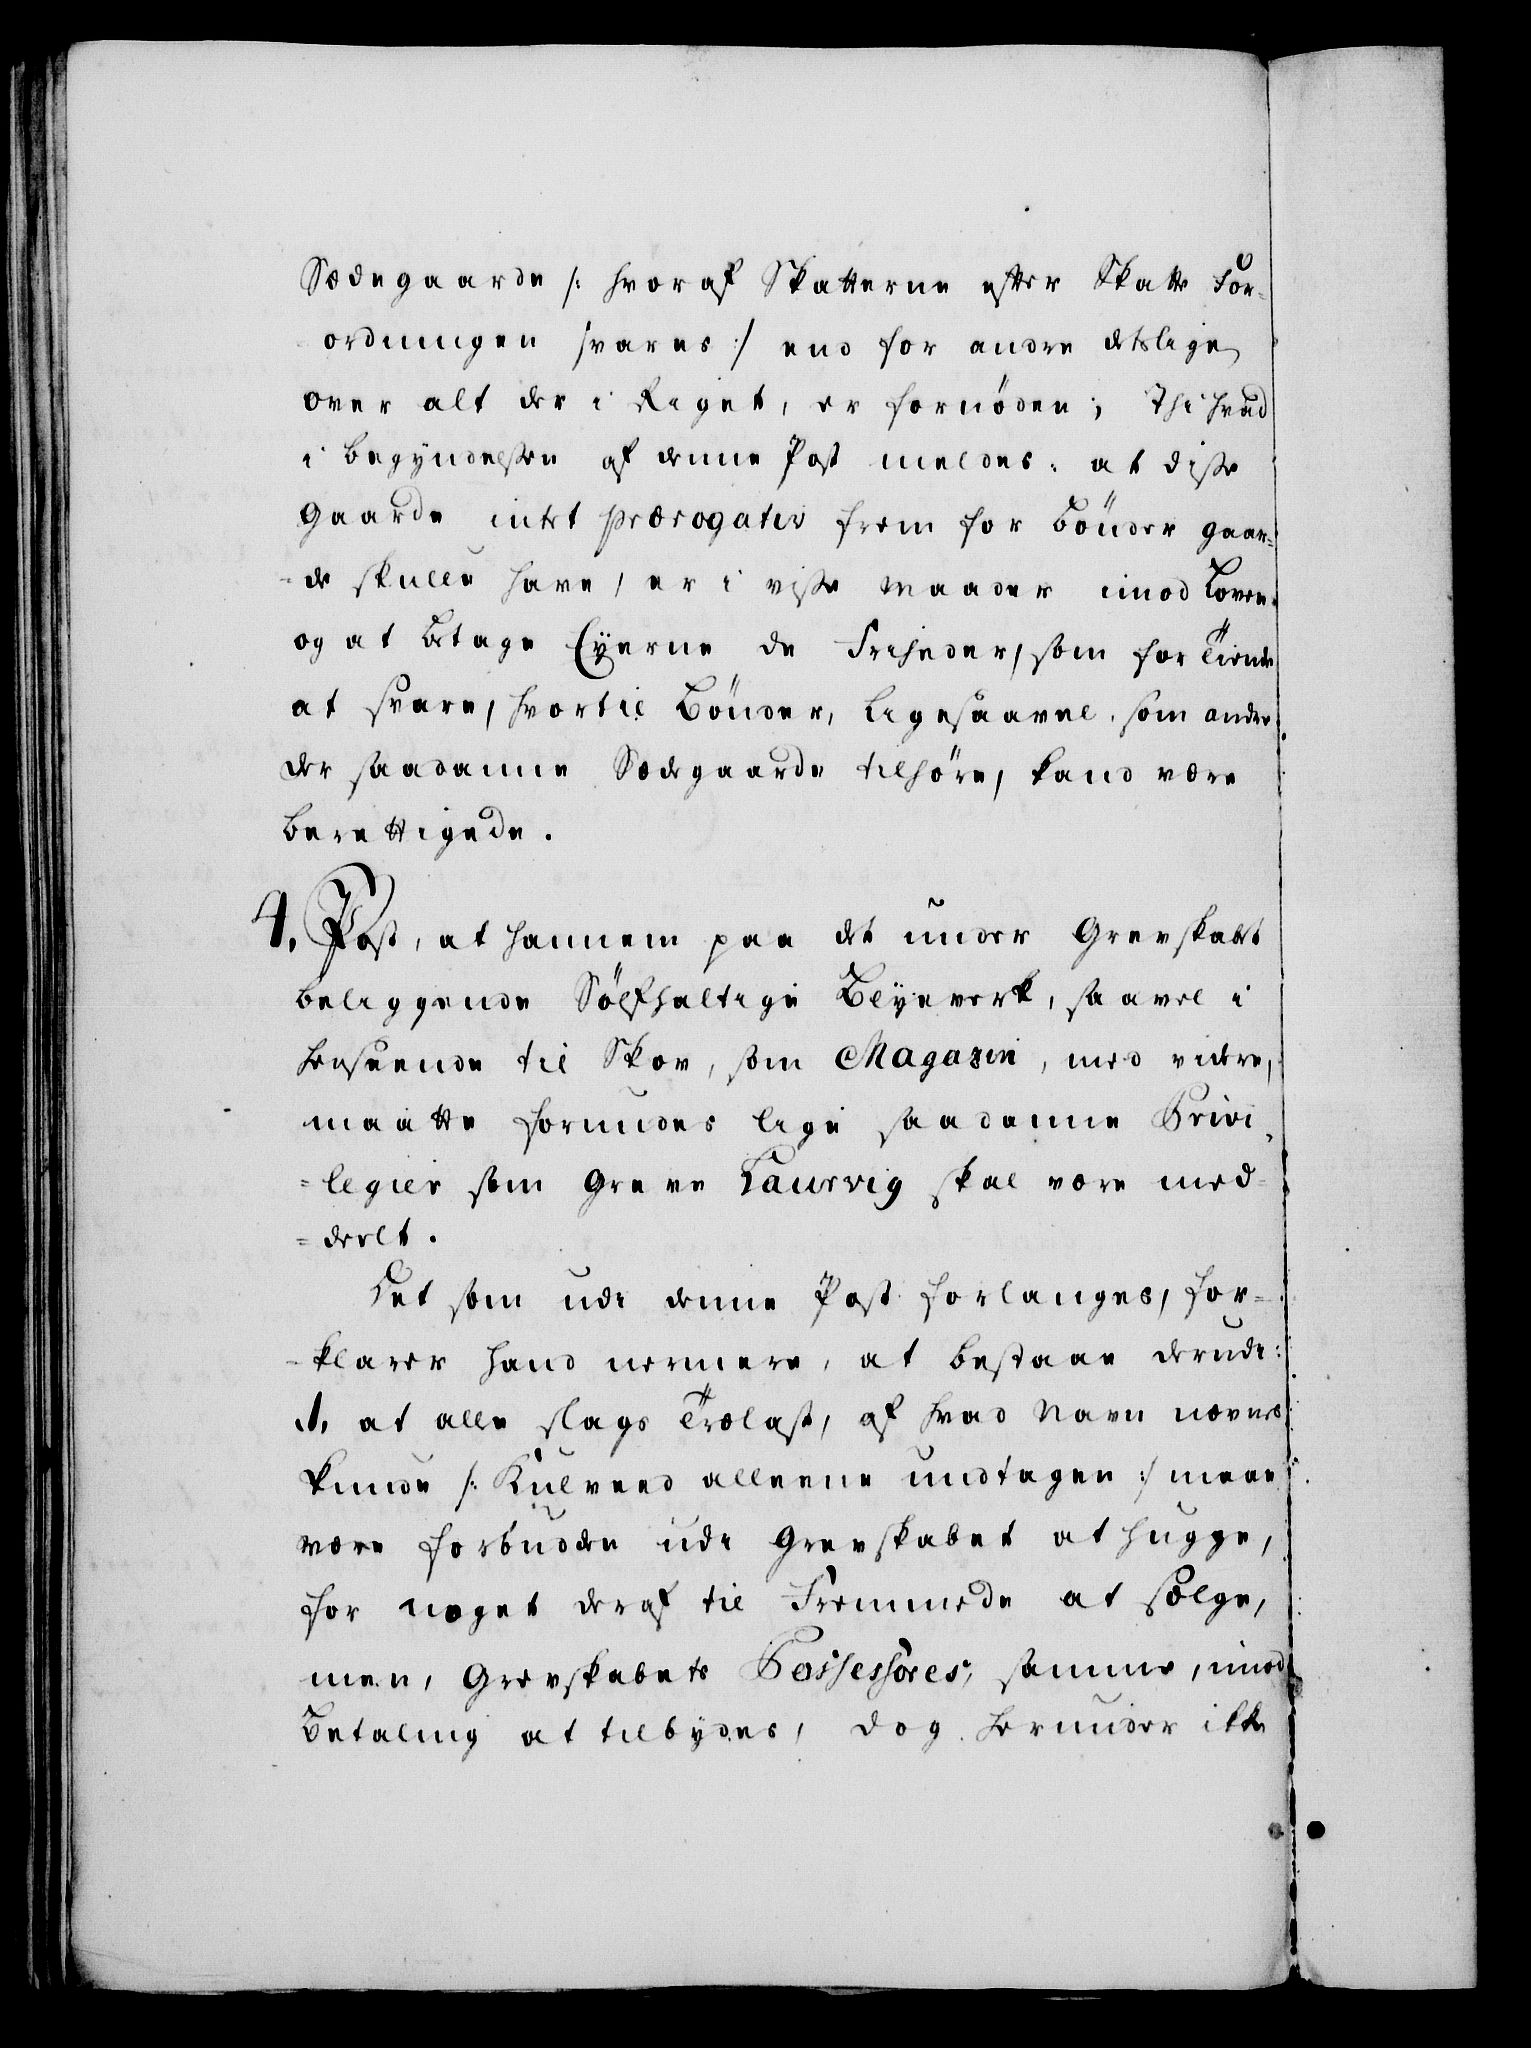 Sædegaarde /: hvoraf Skatterne efter Skatte For-
ordningen svares :/ end for andre detslige
over alt der i Riget, er fornöden; Thi hvad
i begyndelssen af denne Post meldes: at disse
Gaarde intet prærogativ frem for Bönder gaar=
=de skulle have, er i visse maader imod Loven
og at betage Eyerne de Friheder, som for Tiende
at svare, hvortil Bönder, ligesaavel som andre
der saadanne Sædegaarde tilhöre, kand være
berettigede.
4. Post, at hannem paa det under Grevskabet
beliggende Sölfholtige Blyeverk, saavel i
henseende til Skov, som Magazin, med videre,
maatte forundes lige saadanne Privi-
=legier som Greve Laurvig skal være med-
=deelt.
Det som udi denne Post forlanges, for=
=klarer hand nermere, at bestaae derudi:
1. at alle slags Trælast, af hvad Navn nævnes
kunde /: Kulveed alleene undtagen :/ maae
være forbuden udi Grevskabet at hugge,
for noget deraf til Fremmede at sælge,
men, Grevskabets Possessores, samme, imod
Betaling at tilbydes, dog herunder ikke